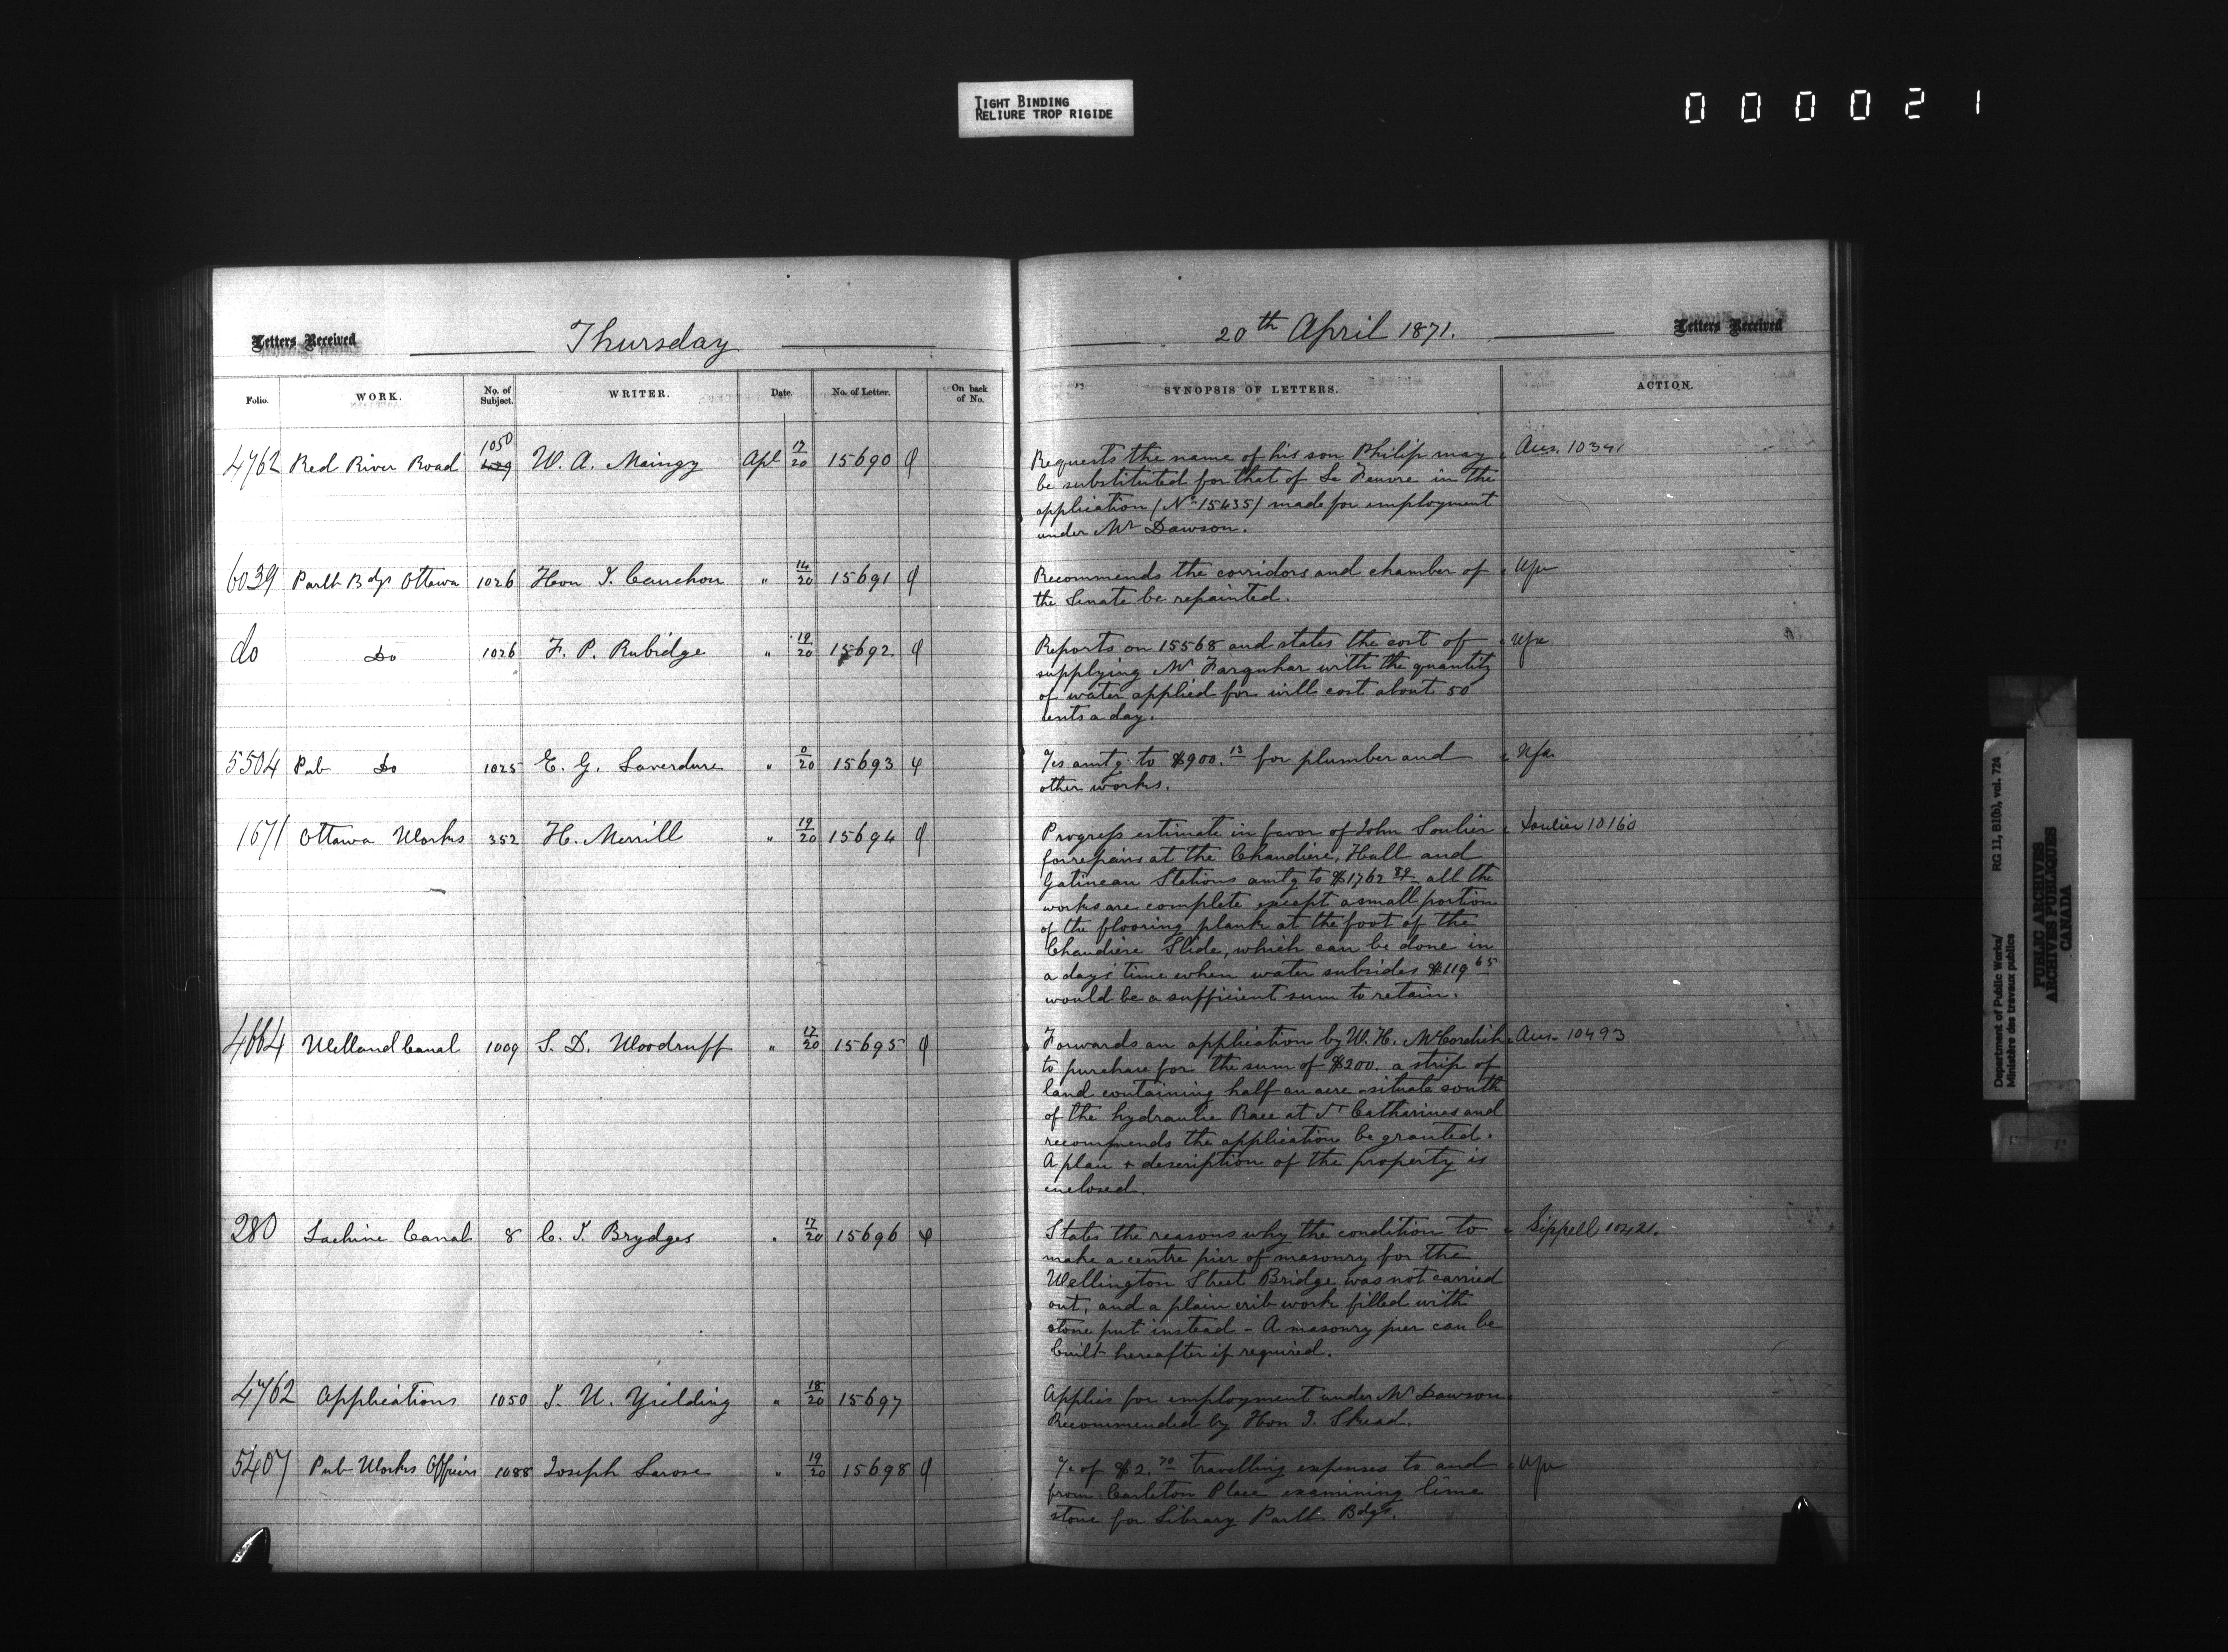 TIGHT BINDING
RELIURE TROP RIGIDE
000021
Letters Received
Thursday
Folio. WORK. No. of Subject. WRITER. Date. No. of Letter. On back of No.
4762 Red River Road 1050 W. A. Maingy Apl 17/20 15690
6039 Parlt Bdgs Ottawa 1026 Hon J. Cauchon " 14/20 15691
do Do 1026 F. P. Rubidge " 19/20 15692
5504 Pub Do 1025 E. G. Laverdure " 0/20 15693
1671 Ottawa Works 352 H. Merrill " 19/20 15694
4664 Welland Canal 1009 S. D. Woodruff " 17/20 15695
280 Lachine Canal 8 C. J. Brydges " 17/20 15696
4762 Applications 1050 J. U. Yielding " 18/20 15697
5407 Pub Works Officers 1088 Joseph Larose " 19/20 15698
20th April 1871.
Letters Received
SYNOPSIS OF LETTERS. ACTION.
Requests the name of his son Philip may Ans. 10341
be substituted for that of Le Feuvre in the
application (No 15435) made for employment
under Mr Dawson.
Recommends the corridors and chamber of
the Senate be repainted.
Reports on 15568 and states the cost of
supplying Mr Farquhar with the quantity
of water applied for will cost about 50
cents a day.
amtg to $900.13 for plumber and
other works.
Progress estimate in favor of John Soulier Soulier 10160
for repairs at the Chaudiere, Hull and
Gatineau Stations amtg to $1762 89 all the
works are complete except a small portion
of the flooring plank at the foot of the
Chaudiere Slide, which can be done in
a days' time when water subsides $119 65
would be a sufficient sum to retain.
Forwards an application by W. H. McCordick Ans. 10493
to purchase for the sum of $200. a strip of
land containing half an acre situate south
of the hydraulic Race at St Catharines and
recommends the application be granted.
A plan & description of the property is
enclosed.
States the reasons why the condition to Sippell 10421.
make a centre pier of masonry for the
Wellington Street Bridge was not carried
out, and a plain crib work filled with
stone put instead - A masonry pier can be
built hereafter if required.
Applies for employment under Mr Dawson
Recommended by Hon J. Skead.
of $2.70 travelling expenses to and
from Carleton Place examining lime
stone for Library Parlt Bdgs.
Department of Public Works/ RG 11, B1(b), vol. 724
Ministère des travaux publics
PUBLIC ARCHIVES
ARCHIVES PUBLIQUES
CANADA